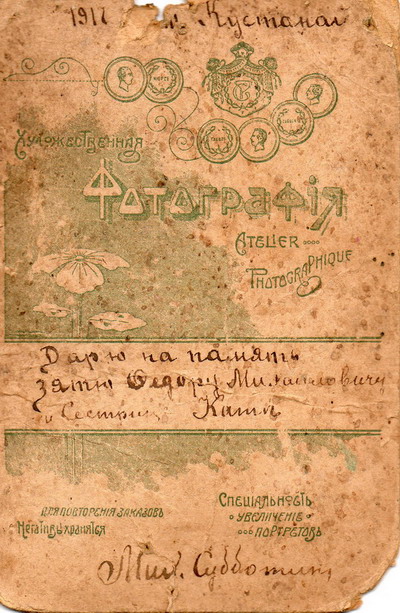 1917 г. Кустанай
Художественная
Фотографія
Atelier
Photographique
Дарю на память
зятю Федору Михайловичу
и Сестрице Кати
Для повторенія заказовъ
Негативы хранятся
Спеціальность
увеличеніе
портретовъ
Мих. Субботинъ